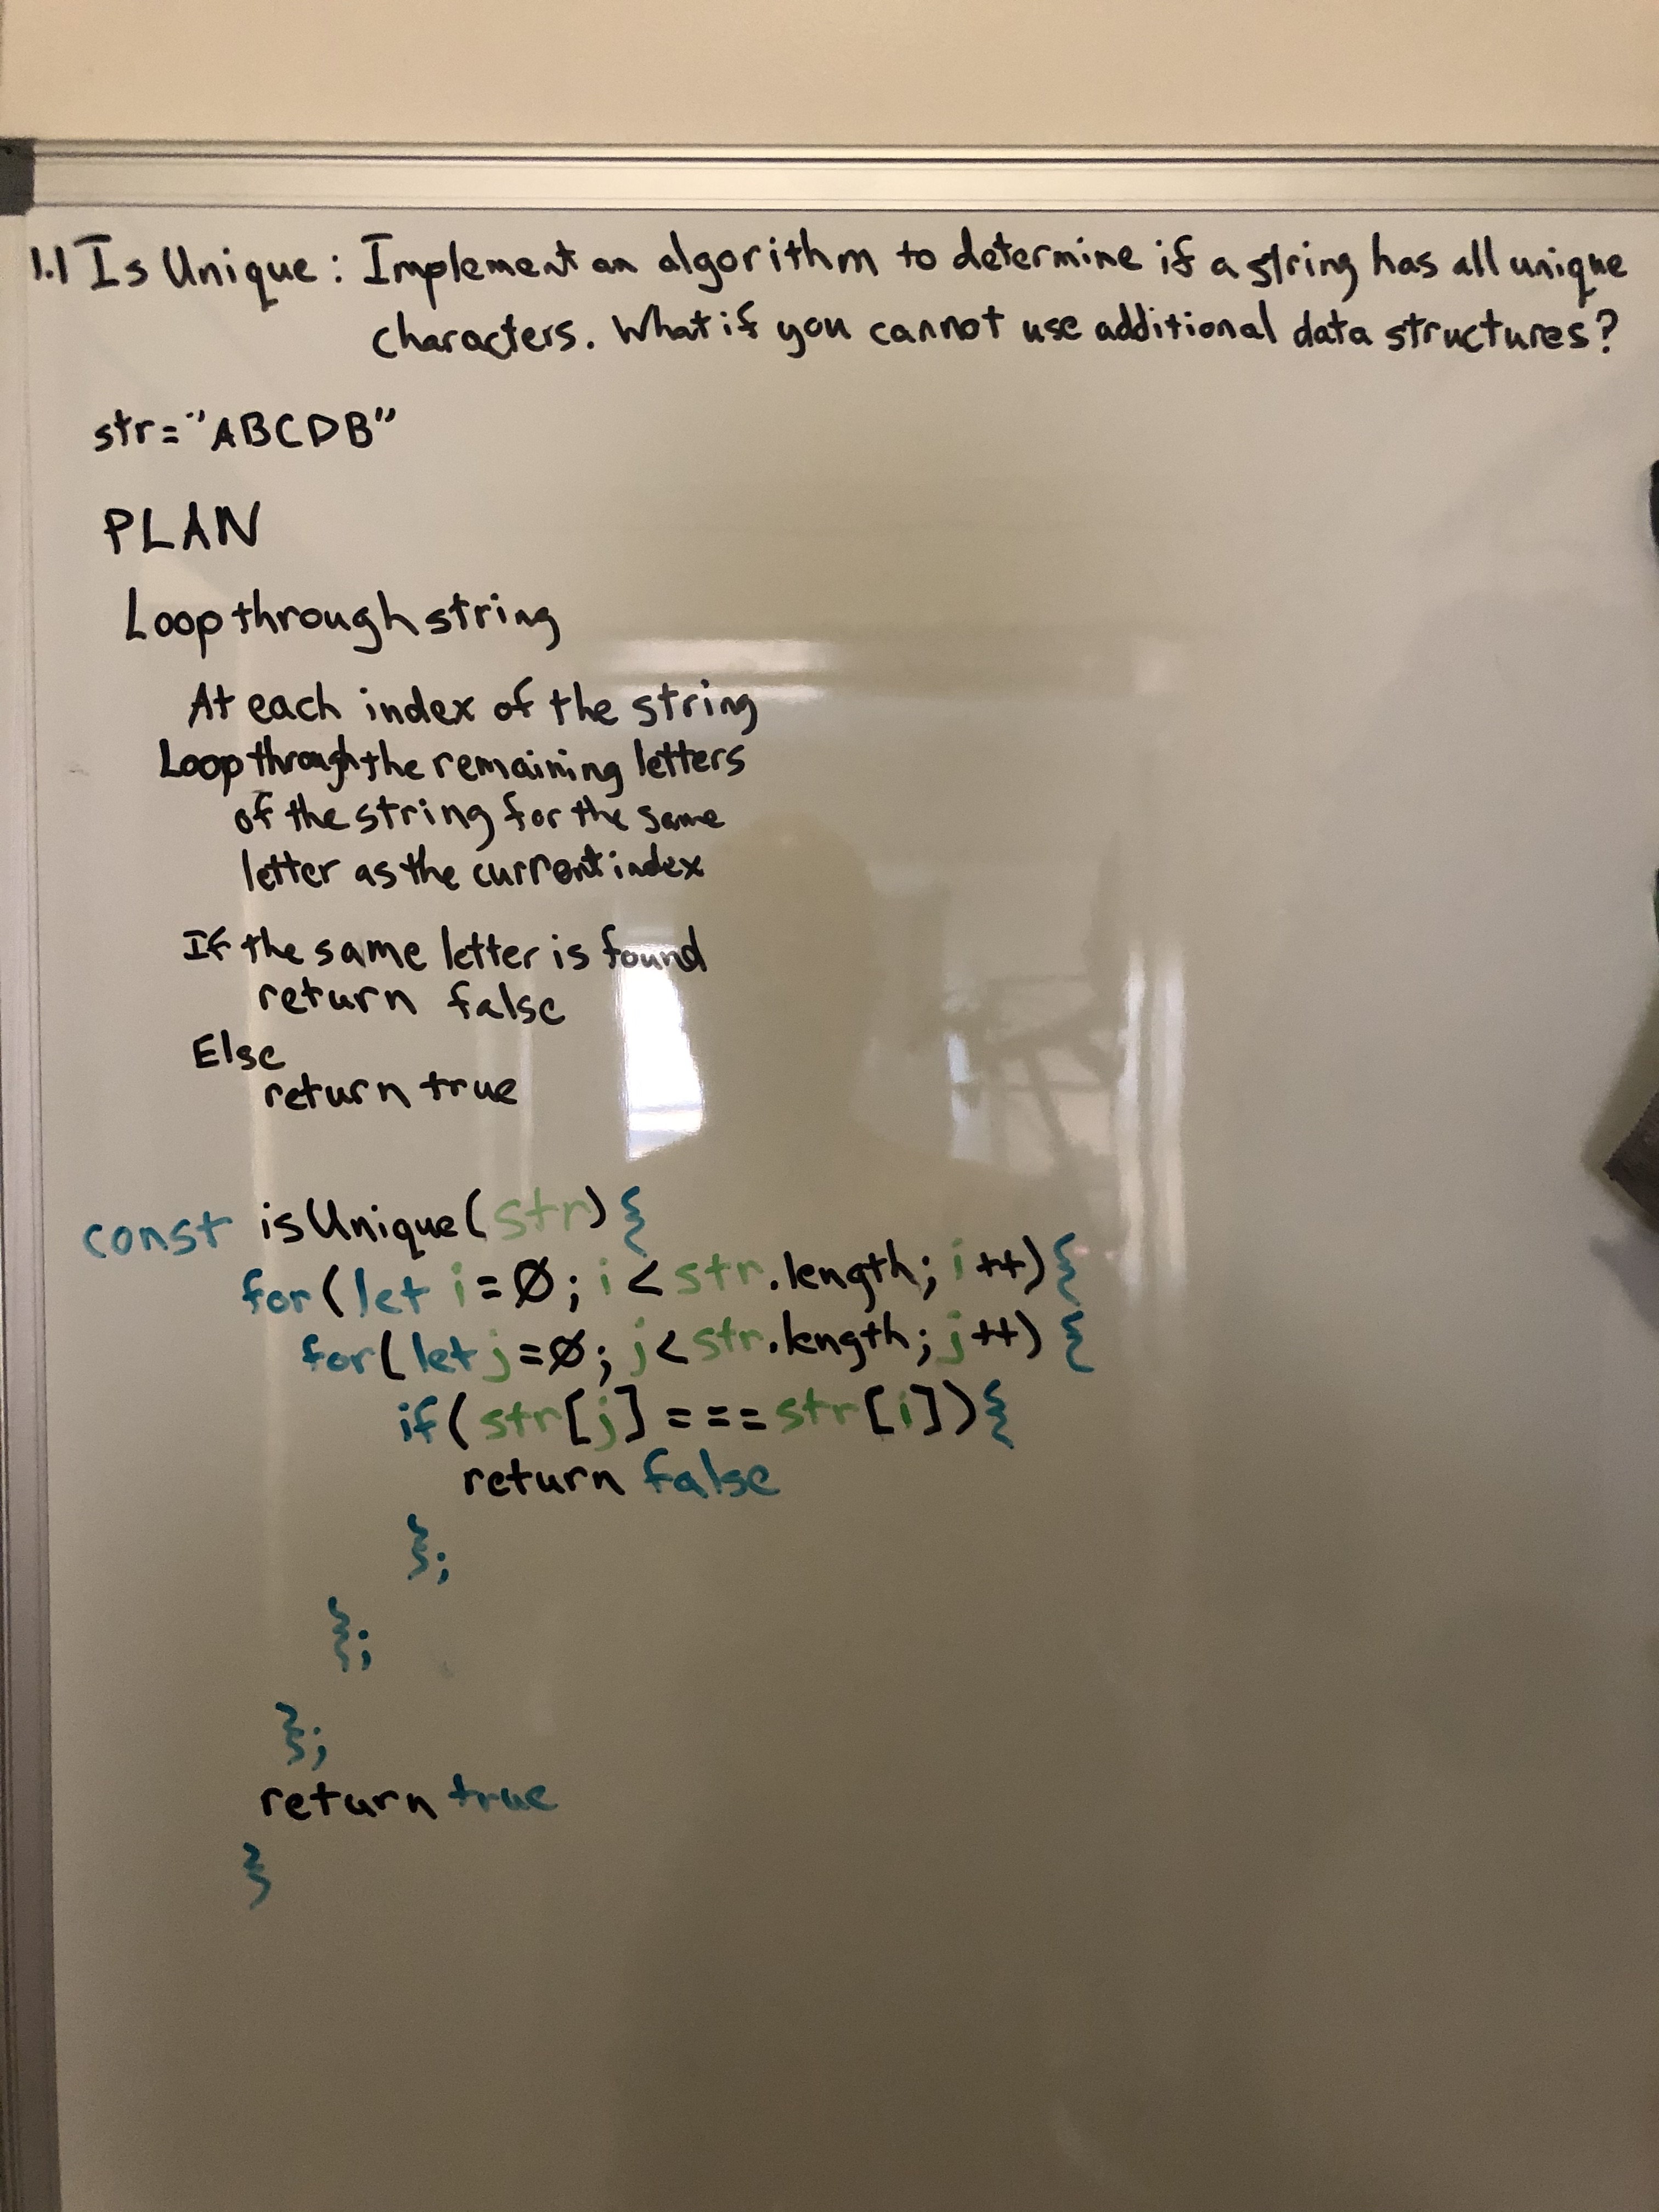 1.1 Is Unique: Implement an algorithm to determine if a string has all unique
characters. What if you cannot use additional data structures?
str="ABCDB"
PLAN
Loop through string
At each index of the string
Loop through the remaining letters
of the string for the same
letter as the current index
If the same letter is found
return false
Else
return true
const isUnique(str){
for(let i=0; i<str.length; i++){
for(let j=0; j<str.length; j++){
if(str[j]===str[i]){
return false
};
};
};
return true
}